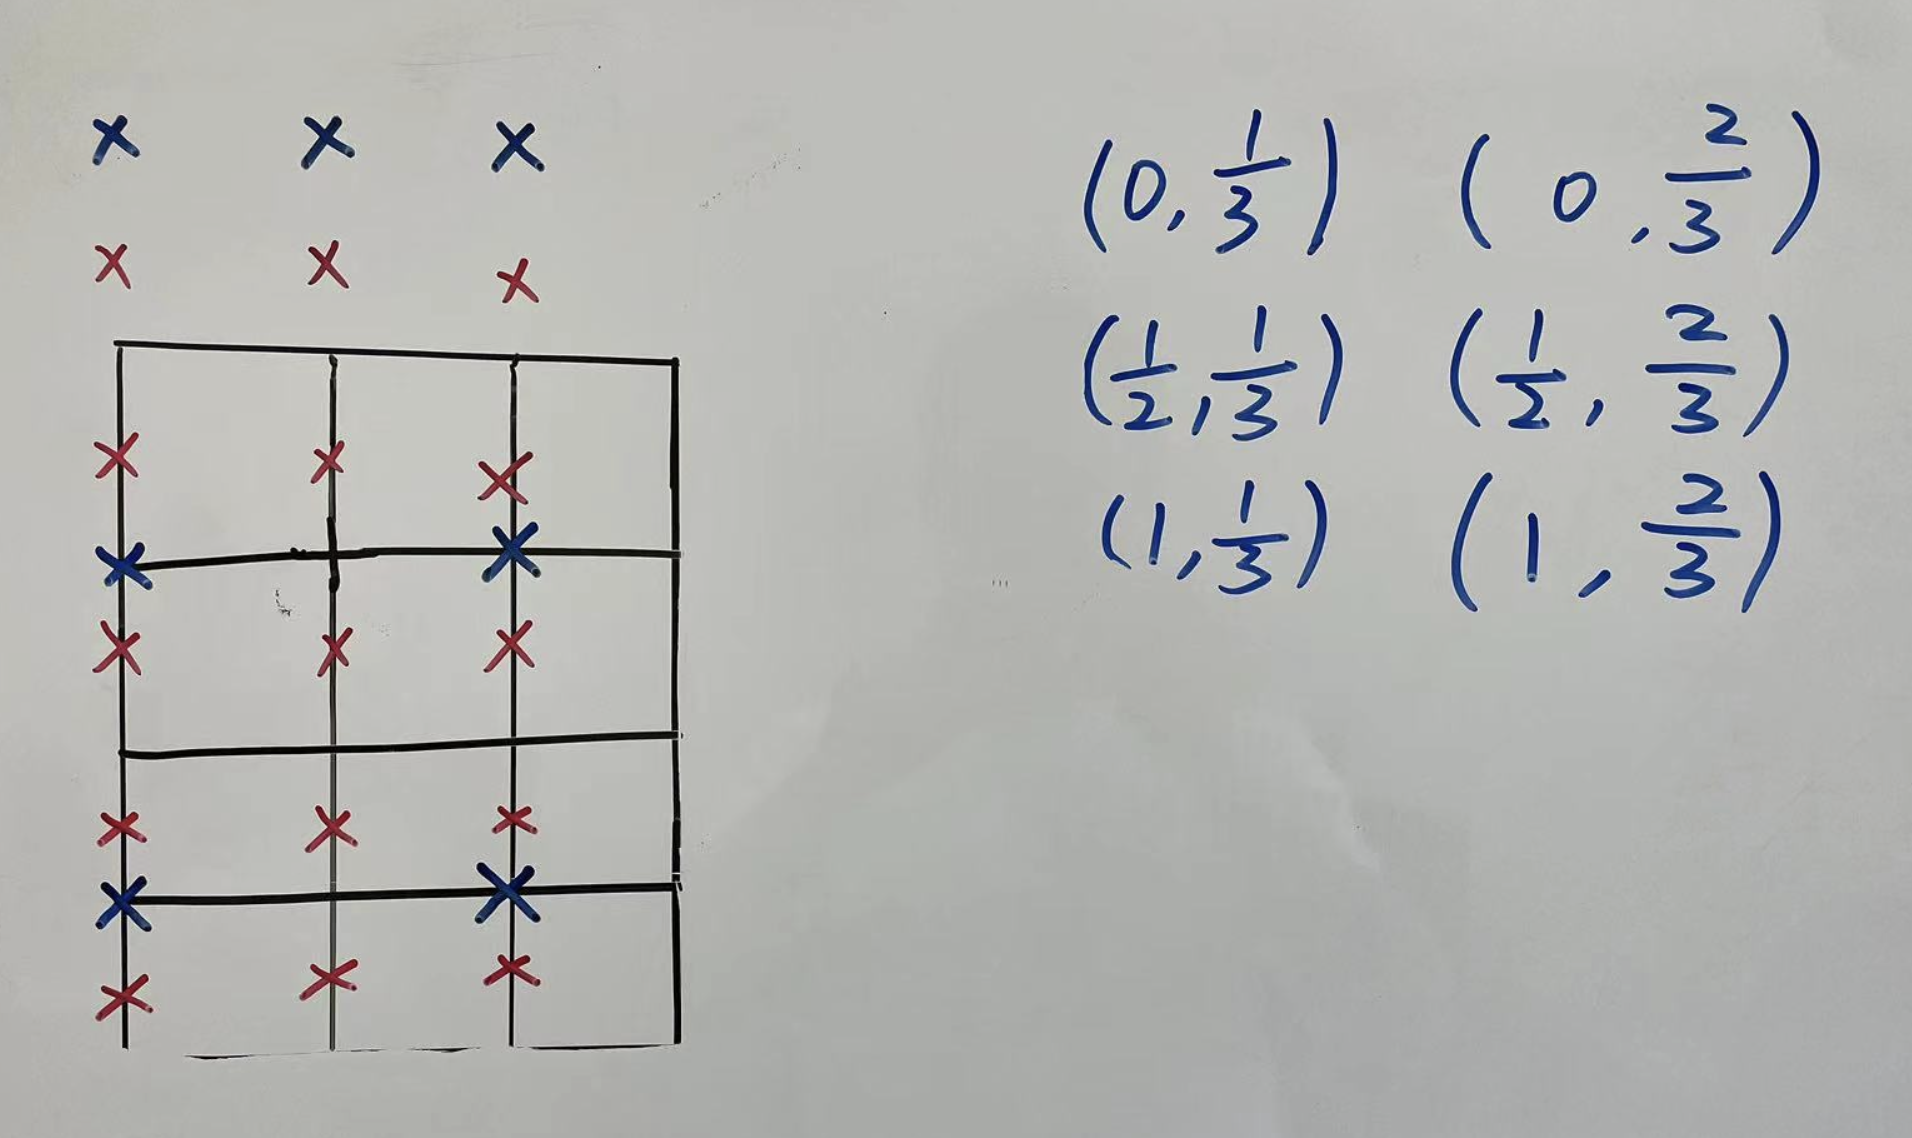 (0, 1/3) (0, 2/3)
(1/2, 1/3) (1/2, 2/3)
(1, 1/3) (1, 2/3)